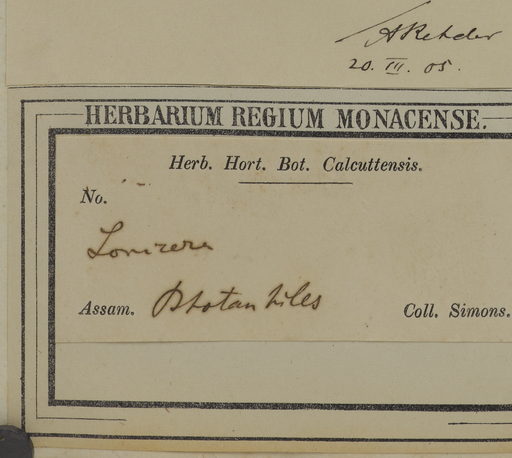 A Rehder
20. III. 05.
HERBARIUM REGIUM MONACENSE.
Herb. Hort. Bot. Calcuttensis.
No.
Lonicera
Assam. Bhotan hills Coll. Simons.